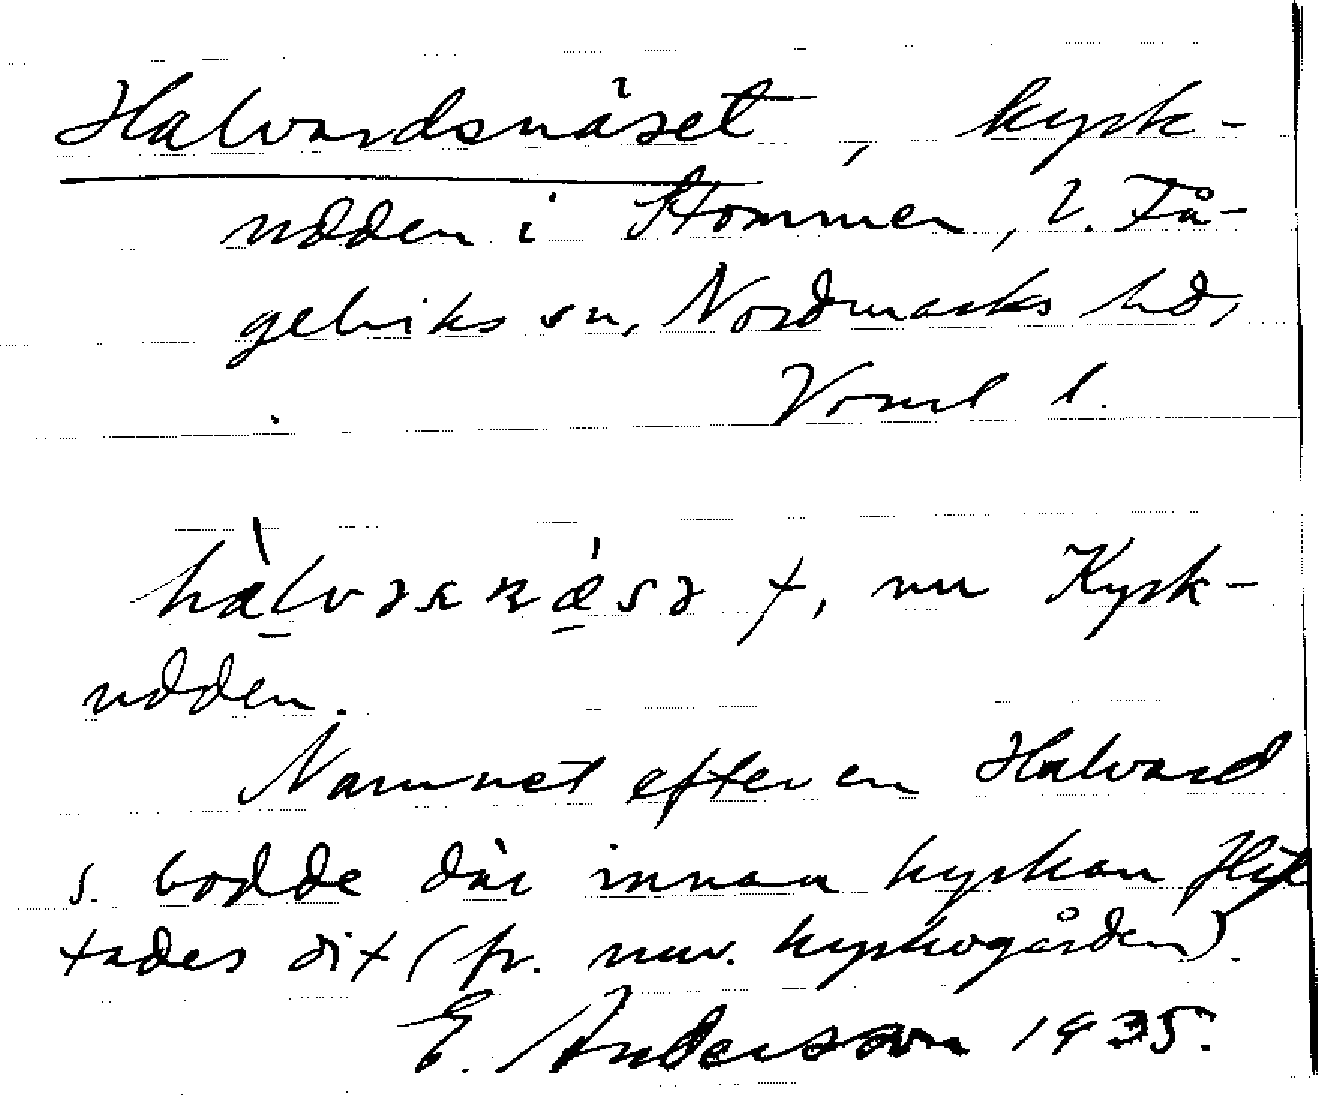 Halvardsnäset, kyrk-
udden i Stommen, V. Få-
gelviks sn, Nordmarks hd,
Värml l.
hàlvaṣṇæ̀sə †, nu Kyrk-
udden.
Namnet efter en Halvard
s. bodde där innan kyrkan flyt
tades dit (fr. nuv. kyrkogården).
E. Andersson 1935.